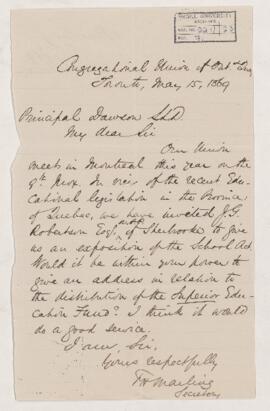 McGILL UNIVERSITY
ARCHIVES
ACC. NO.
REF.
Congregational Union of Ont. &
Toronto, May 15, 1869
Principal Dawson LLD.
My dear Sir
Our Union
meets in Montreal this year on the
9th Prox. In view of the recent Edu-
cational legislation in the Province
of Quebec, we have invited J.G.
Robertson Esq. of Sherbrooke to give
us an exposition of the School Act
Would it be within your power to
give an address in relation to
the distribution of the Superior Edu-
cation Fund? I think it would
do a good service.
I am, Sir,
Yours respectfully
Marling
Secretary